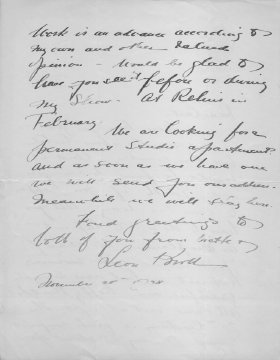 Work is an advance according to
my own and other
opinion - Would be glad to
have you see it before or during
my Show - At Rehns in
February
We are looking for a
permanent Studio apartment
and as soon as we have one
we will send you our address.
Meanwhile we will stay here.
Fond greetings to
both of you from both of
Leon Kroll
November 20